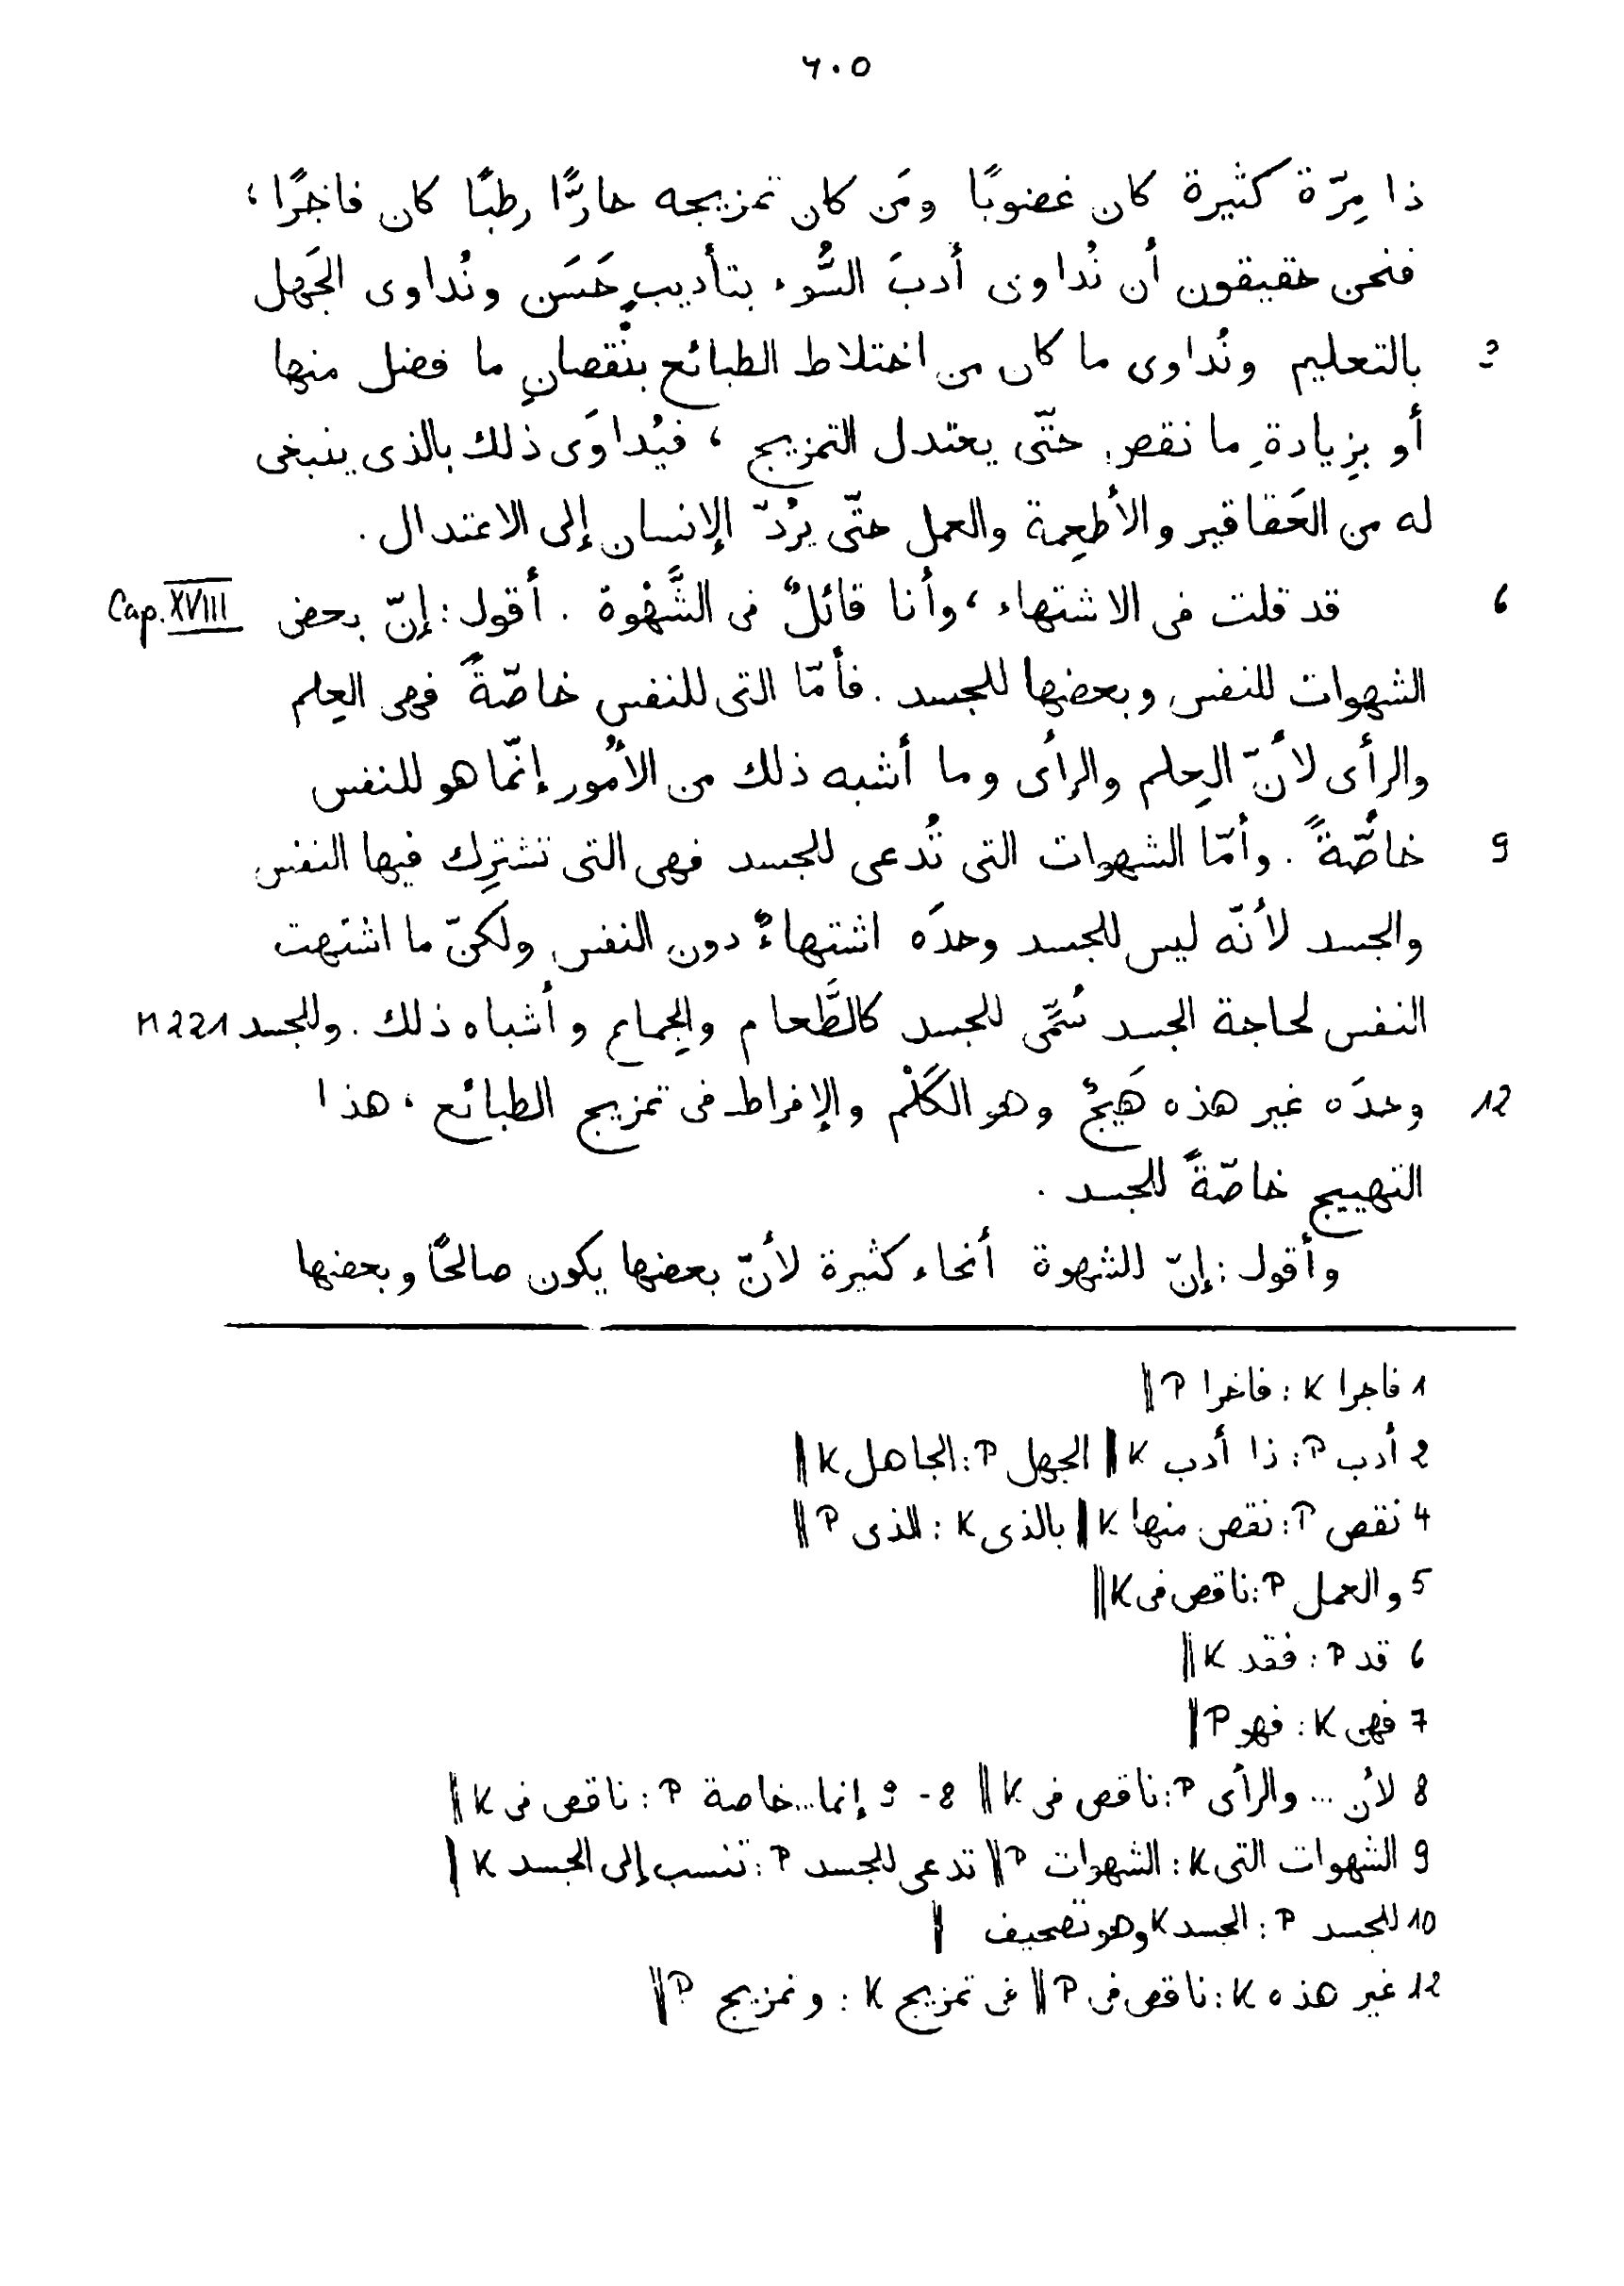 ٦٠٥
ذا مِرّة كثيرة كان غضوبًا ومَن كان تمزيجه حارًّا رطبًا كان فاجرًا؛
فنحن حقيقون أن نُداوى أدبَ السُّوء بتأديبٍ حَسَن ونُداوى الجَهل
3 بالتعليم ونُداوى ما كان من اختلاط الطبائع بنُقصانٍ ما فضل منها
أو بزِيادةِ ما نقص حتّى يعتدل التمزيج، فيُداوَى ذلك بالذى ينبغى
له من العَقاقير والأطعِمة والعمل حتّى يُردّ الإنسان إلى الاعتدال.
6 قد قلت فى الاشتهاء، وأنا قائلٌ فى الشَّهْوة. أقول: إنّ بعض Cap. XVIII
الشهوات للنفس وبعضها للجسد. فأمّا التى للنفس خاصّةً فهى العِلم
والرأى لأنّ الحِلم والرأى وما أشبه ذلك من الأُمور إنّما هو للنفس
9 خاصّةً. وأمّا الشهوات التى تُدعى للجسد فهى التى تشترِك فيها النفس
والجسد لأنّه ليس للجسد وحدَه اشتهاءٌ دون النفس ولكنّ ما اشتهت
النفس لحاجة الجسد سُمِّى للجسد كالطَّعام والجِماع وأشباه ذلك. وللجسد M221
12 وحدَه غير هذه هَيجٌ وهو الكَلْم والإفراط فى تمزيج الطبائع، هذا
التهييج خاصّةً للجسد.
وأقول: إنّ للشهوة أنحاء كثيرة لأنّ بعضها يكون صالحًا وبعضها
1 فاجرا K: فاخرا P‖
2 أدب P: ذا أدب K‖ الجهل P: الجاهل K‖
4 نقص P: نقص منها K‖ بالذى K: الذى P‖
5 والعمل P: ناقص فى K‖
6 قد P: فقد K‖
7 فهى K: فهو P‖
8 لأن ... والرأى P: ناقص فى K‖ 8-9 إنما...خاصة P: ناقص فى K‖
9 الشهوات التى K: الشهوات P‖ تدعى للجسد P: تنسب إلى الجسد K‖
10 للجسد P: الجسد K وهو تصحيف ‖
12 غير هذه K: ناقص فى P‖ فى تمزيج K: وتمزيج P‖